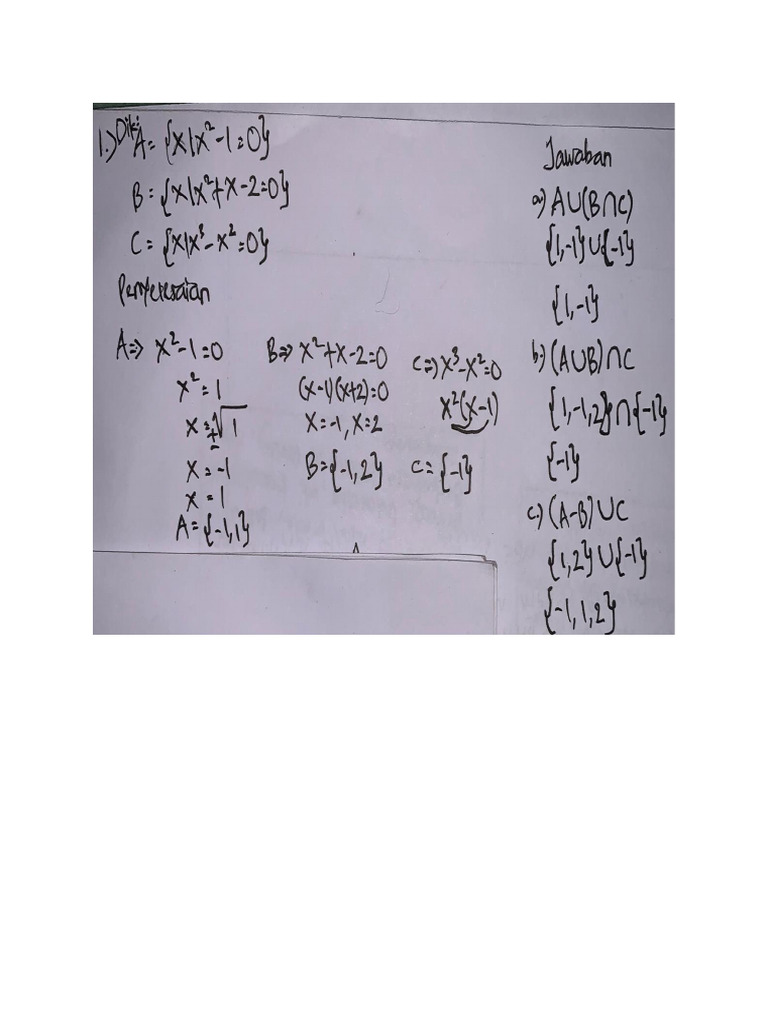 1.) Dik: A = {x|x² - 1 = 0}
B = {x|x² + x - 2 = 0}
C = {x|x³ - x² = 0}
Penyelesaian
A => x² - 1 = 0
x² = 1
x = ±√1
x = -1
x = 1
A = {-1,1}
B => x² + x - 2 = 0
(x-1)(x+2) = 0
x = -1, x = 2
B = {-1,2}
C => x³ - x² = 0
x²(x-1)
C = {-1}
Jawaban
a) A∪(B∩C)
{1,-1}∪{-1}
{1,-1}
b.) (A∪B)∩C
{1,-1,2}∩{-1}
{-1}
c.) (A-B)∪C
{1,2}∪{-1}
{-1,1,2}